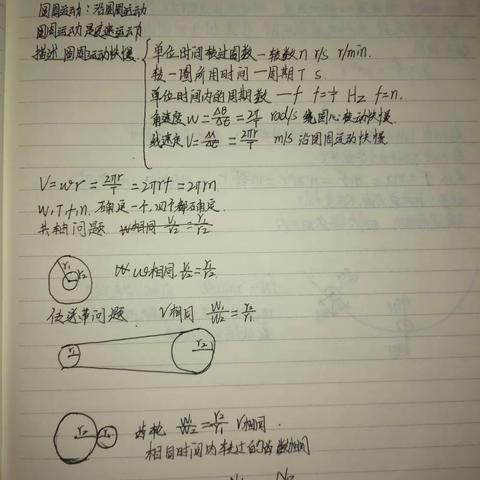 圆周运动：沿圆周运动
圆周运动是变速运动
描述圆周运动快慢
单位时间转过圈数—转数 n r/s r/min.
转一圈所用时间—周期 T s.
单位时间内的周期数—f f=1/T Hz f=n.
角速度 ω=Δθ/Δt=2π/T rad/s 绕圆心转动快慢
线速度 V=Δs/Δt=2πr/T m/s 沿圆周运动快慢
V=ωr=2πr/T=2πrf=2πrn
ω,T,f,n. 确定一个,四个都确定.
共轴问题 ω相同 V₁/V₂=r₁/r₂
r₁ r₂
ω相同. V₁/V₂=r₁/r₂
传送带问题. V相同 ω₁/ω₂=r₂/r₁
r₁ r₂
齿轮 ω₁/ω₂=r₂/r₁ V相同.
相同时间内转过的齿数相同